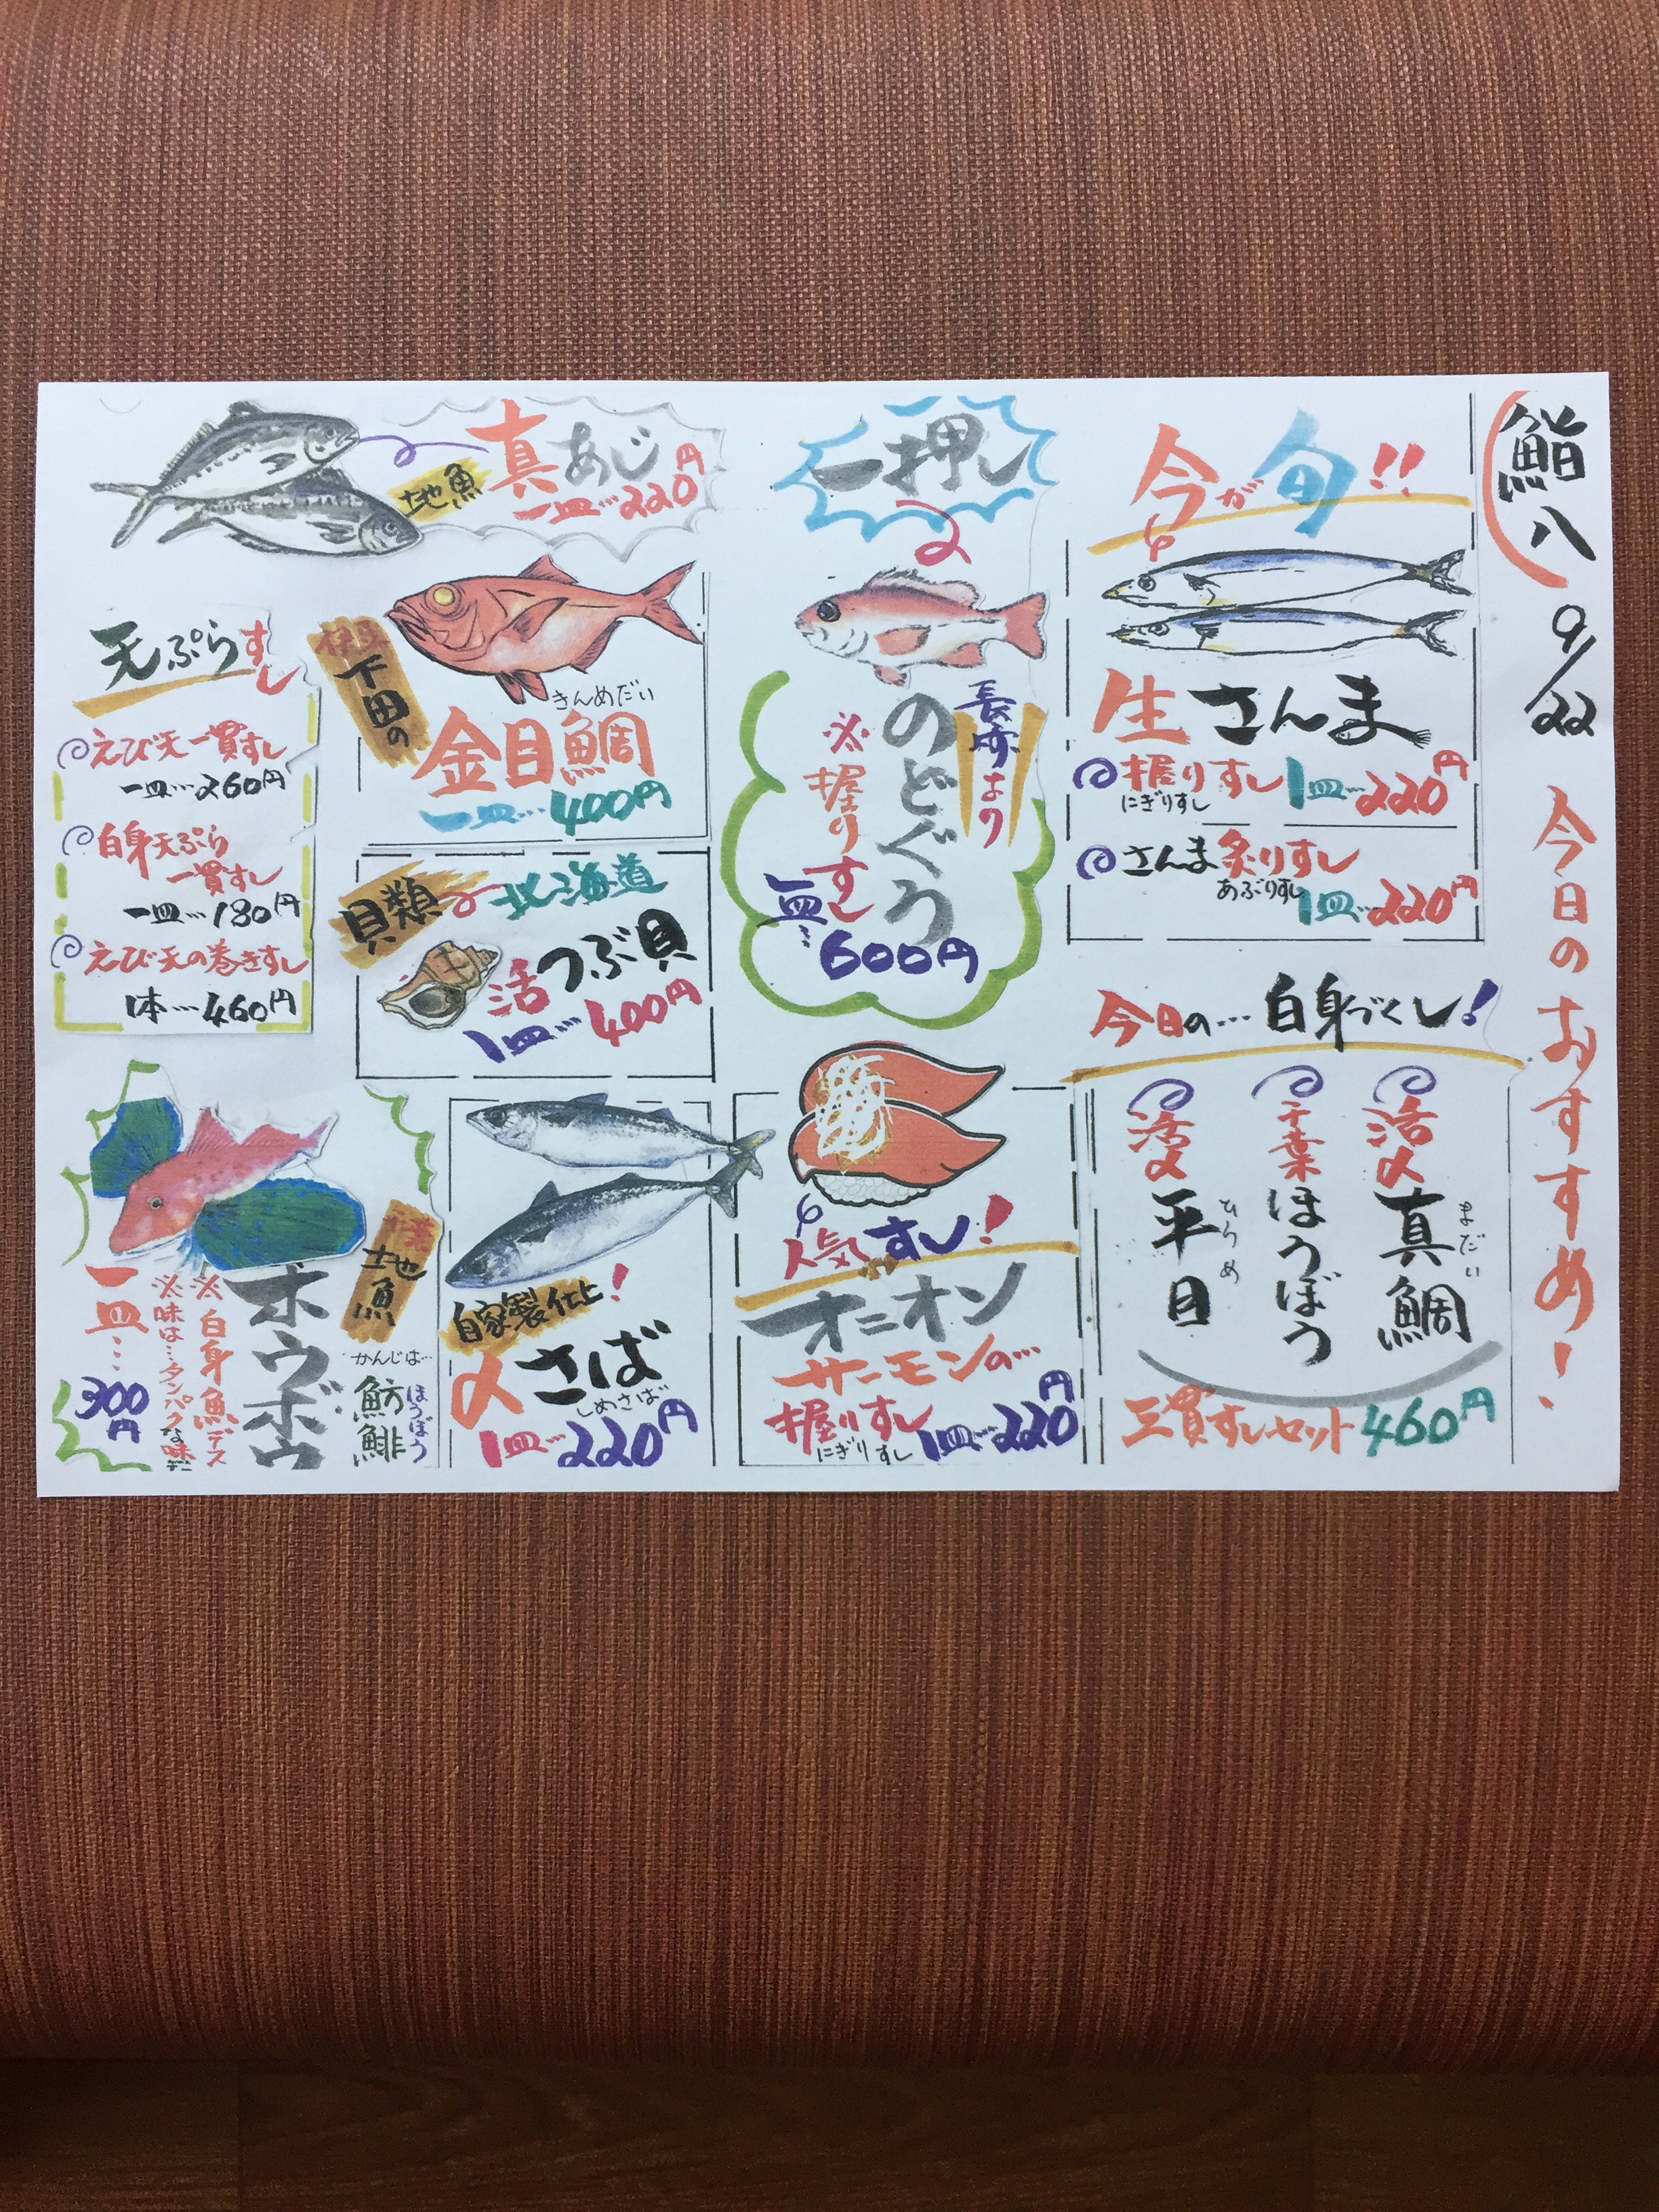 鮨八
9/22
今日のおすすめ!
今が旬!!
生さんま
握りすし 1皿…220円
にぎりすし
さんま炙りすし
あぶりすし
1皿…220円
今日の…白身づくし!
活〆
真鯛
まだい
千葉
ほうぼう
活〆
平目
ひらめ
三貫すしセット460円
一押し
長崎より
のどぐろ
※握りすし
一皿…
600円
人気すし!
オニオン
サーモンの…
握りすし
にぎりすし
1皿…220円
地魚
真あじ
一皿…220円
下田の
きんめだい
金目鯛
一皿…400円
貝類
北海道
活つぶ貝
1皿…400円
自家製仕上!
〆さば
しめさば
1皿…220円
天ぷらすし
えび天一貫すし
一皿…260円
白身天ぷら
一貫すし
一皿…180円
えび天の巻きすし
1本…460円
地魚
かんじは…
魴鮄
ほうぼう
ホウボウ
※白身魚デス
※味は…タンパクな味
一皿…
300円